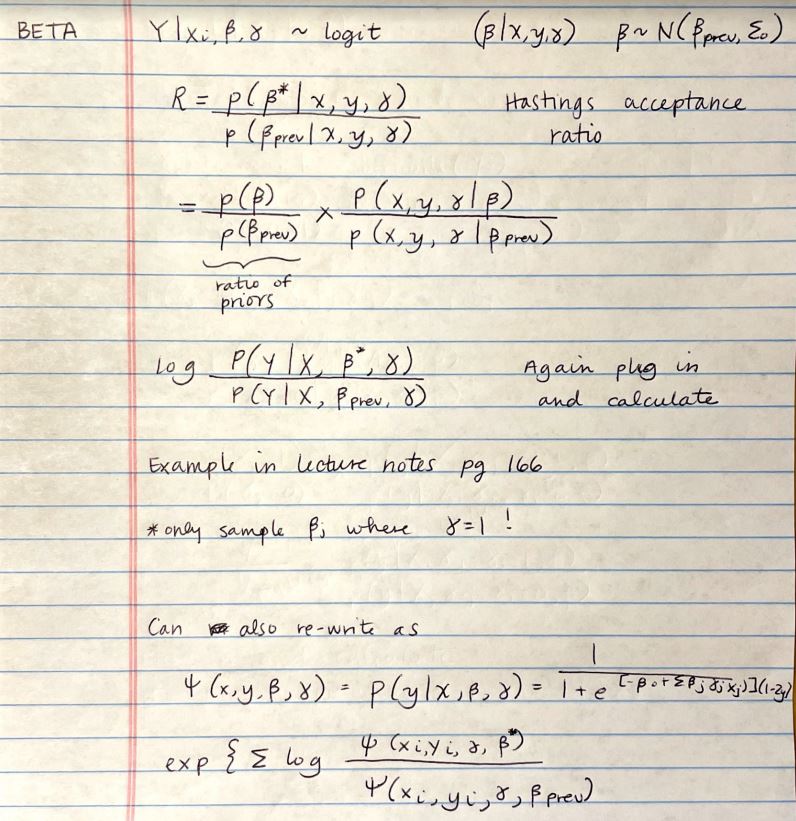 BETA Y|xi, β, γ ~ logit (β|x,y,γ) β ~ N(βprev, Σ₀)
R = p(β* | x, y, γ) / p(βprev | x, y, γ) Hastings acceptance ratio
= p(β) / p(βprev) × P(x, y, γ | β) / p(x, y, γ | βprev)
ratio of
priors
log P(Y | X, β*, γ) / P(Y | X, βprev, γ) Again plug in and calculate
Example in lecture notes pg 166
* only sample βj where γ=1 !
Can also re-write as
ψ(x,y,β,γ) = p(y|x,β,γ) = 1 / 1 + e^[-β₀+Σβjγjxj)](1-2y)
exp { Σ log ψ(xi,yi,γ,β*) / ψ(xi,yi,γ,βprev)